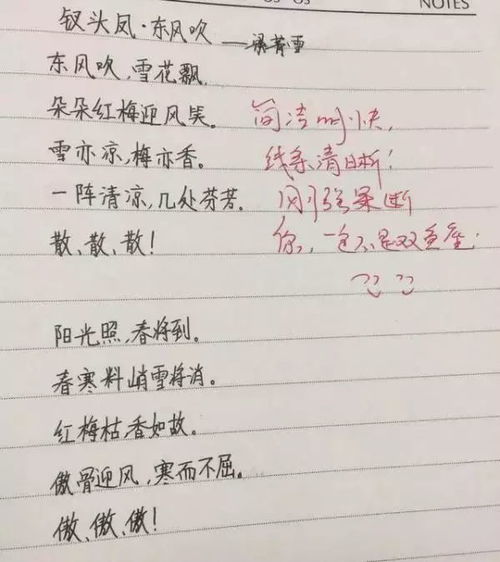 NOTES
钗头凤·东风吹 ——梁菁雪
东风吹,雪花飘.
朵朵红梅迎风笑。
雪亦凉,梅亦香。
一阵清凉,几处芬芳.
散、散、散!
简洁明快,
线条清晰!
刚强果断
你,一定不是双鱼座:
阳光照,春将到。
春寒料峭雪将消。
红梅枯,香如故。
傲骨迎风,寒而不屈。
傲、傲、傲!